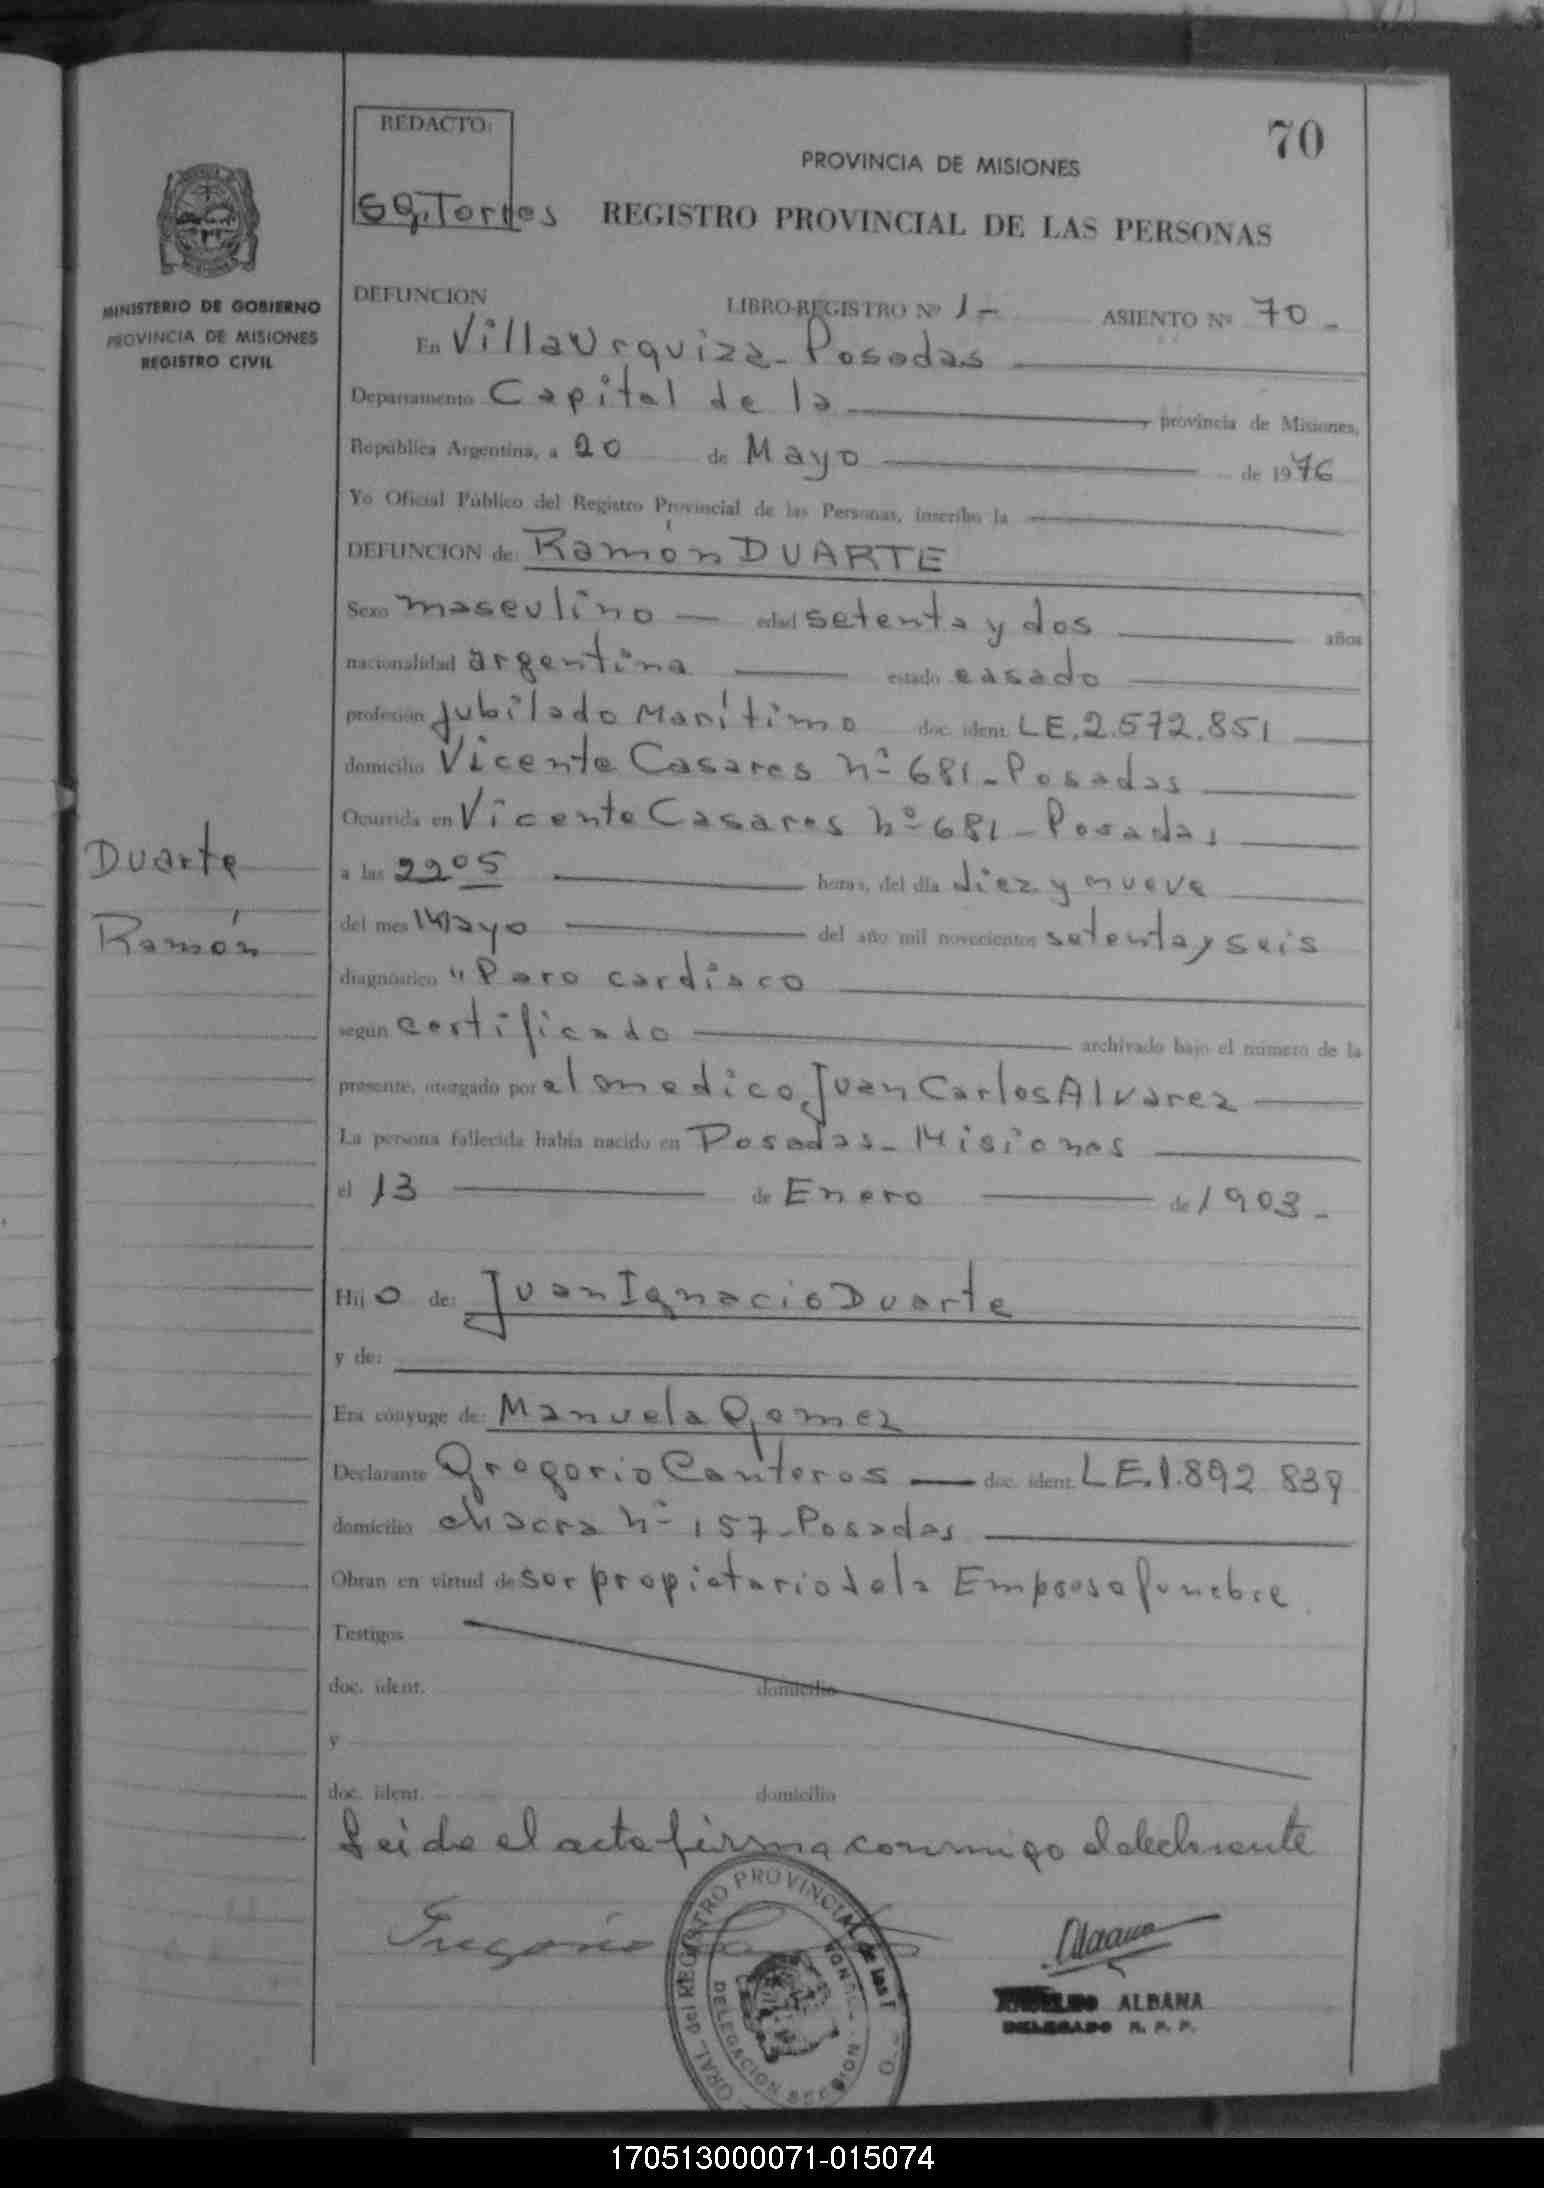 REDACTO:
70
PROVINCIA DE MISIONES
SG.Torres
REGISTRO PROVINCIAL DE LAS PERSONAS
MINISTERIO DE GOBIERNO
PROVINCIA DE MISIONES
REGISTRO CIVIL
DEFUNCION LIBRO-REGISTRO Nº 1- ASIENTO Nº 70-
En Villa Urquiza-Posadas
Departamento Capital de la provincia de Misiones,
República Argentina, a 20 de Mayo de 1976
Yo Oficial Público del Registro Provincial de las Personas, inscribo la
DEFUNCION de: Ramón DUARTE
Sexo masculino edad setenta y dos años
nacionalidad argentina estado casado
profesión jubilado Marítimo doc. ident. LE.2.572.851
domicilio Vicente Casares nº 681-Posadas
Ocurrida en Vicente Casares nº 681-Posadas
a las 22 05 horas, del día diez y nueve
del mes Mayo del año mil novecientos setenta y seis
diagnóstico "Paro cardiaco
según certificado archivado bajo el número de la
presente, otorgado por el medico Juan Carlos Alvarez
La persona fallecida había nacido en Posadas-Misiones
el 13 de Enero de 1903-
Duarte
Ramón
Hijo de: Juan Ignacio Duarte
y de:
Era cónyuge de: Manuela Gomez
Declarante Gregorio Canteros doc. ident. LE.1.892 839
domicilio chacra nº 157-Posadas
Obran en virtud de ser propietario de la Empresa funebre.
Testigos
doc. ident. domicilio
y
doc. ident. domicilio
Leida el acta firma conmigo el declarante
Gregorio
GRAL. del REGISTRO PROVINCIAL de las P
DELEGACION
ALBANA
DELEGADO R. P. P.
170513000071-015074